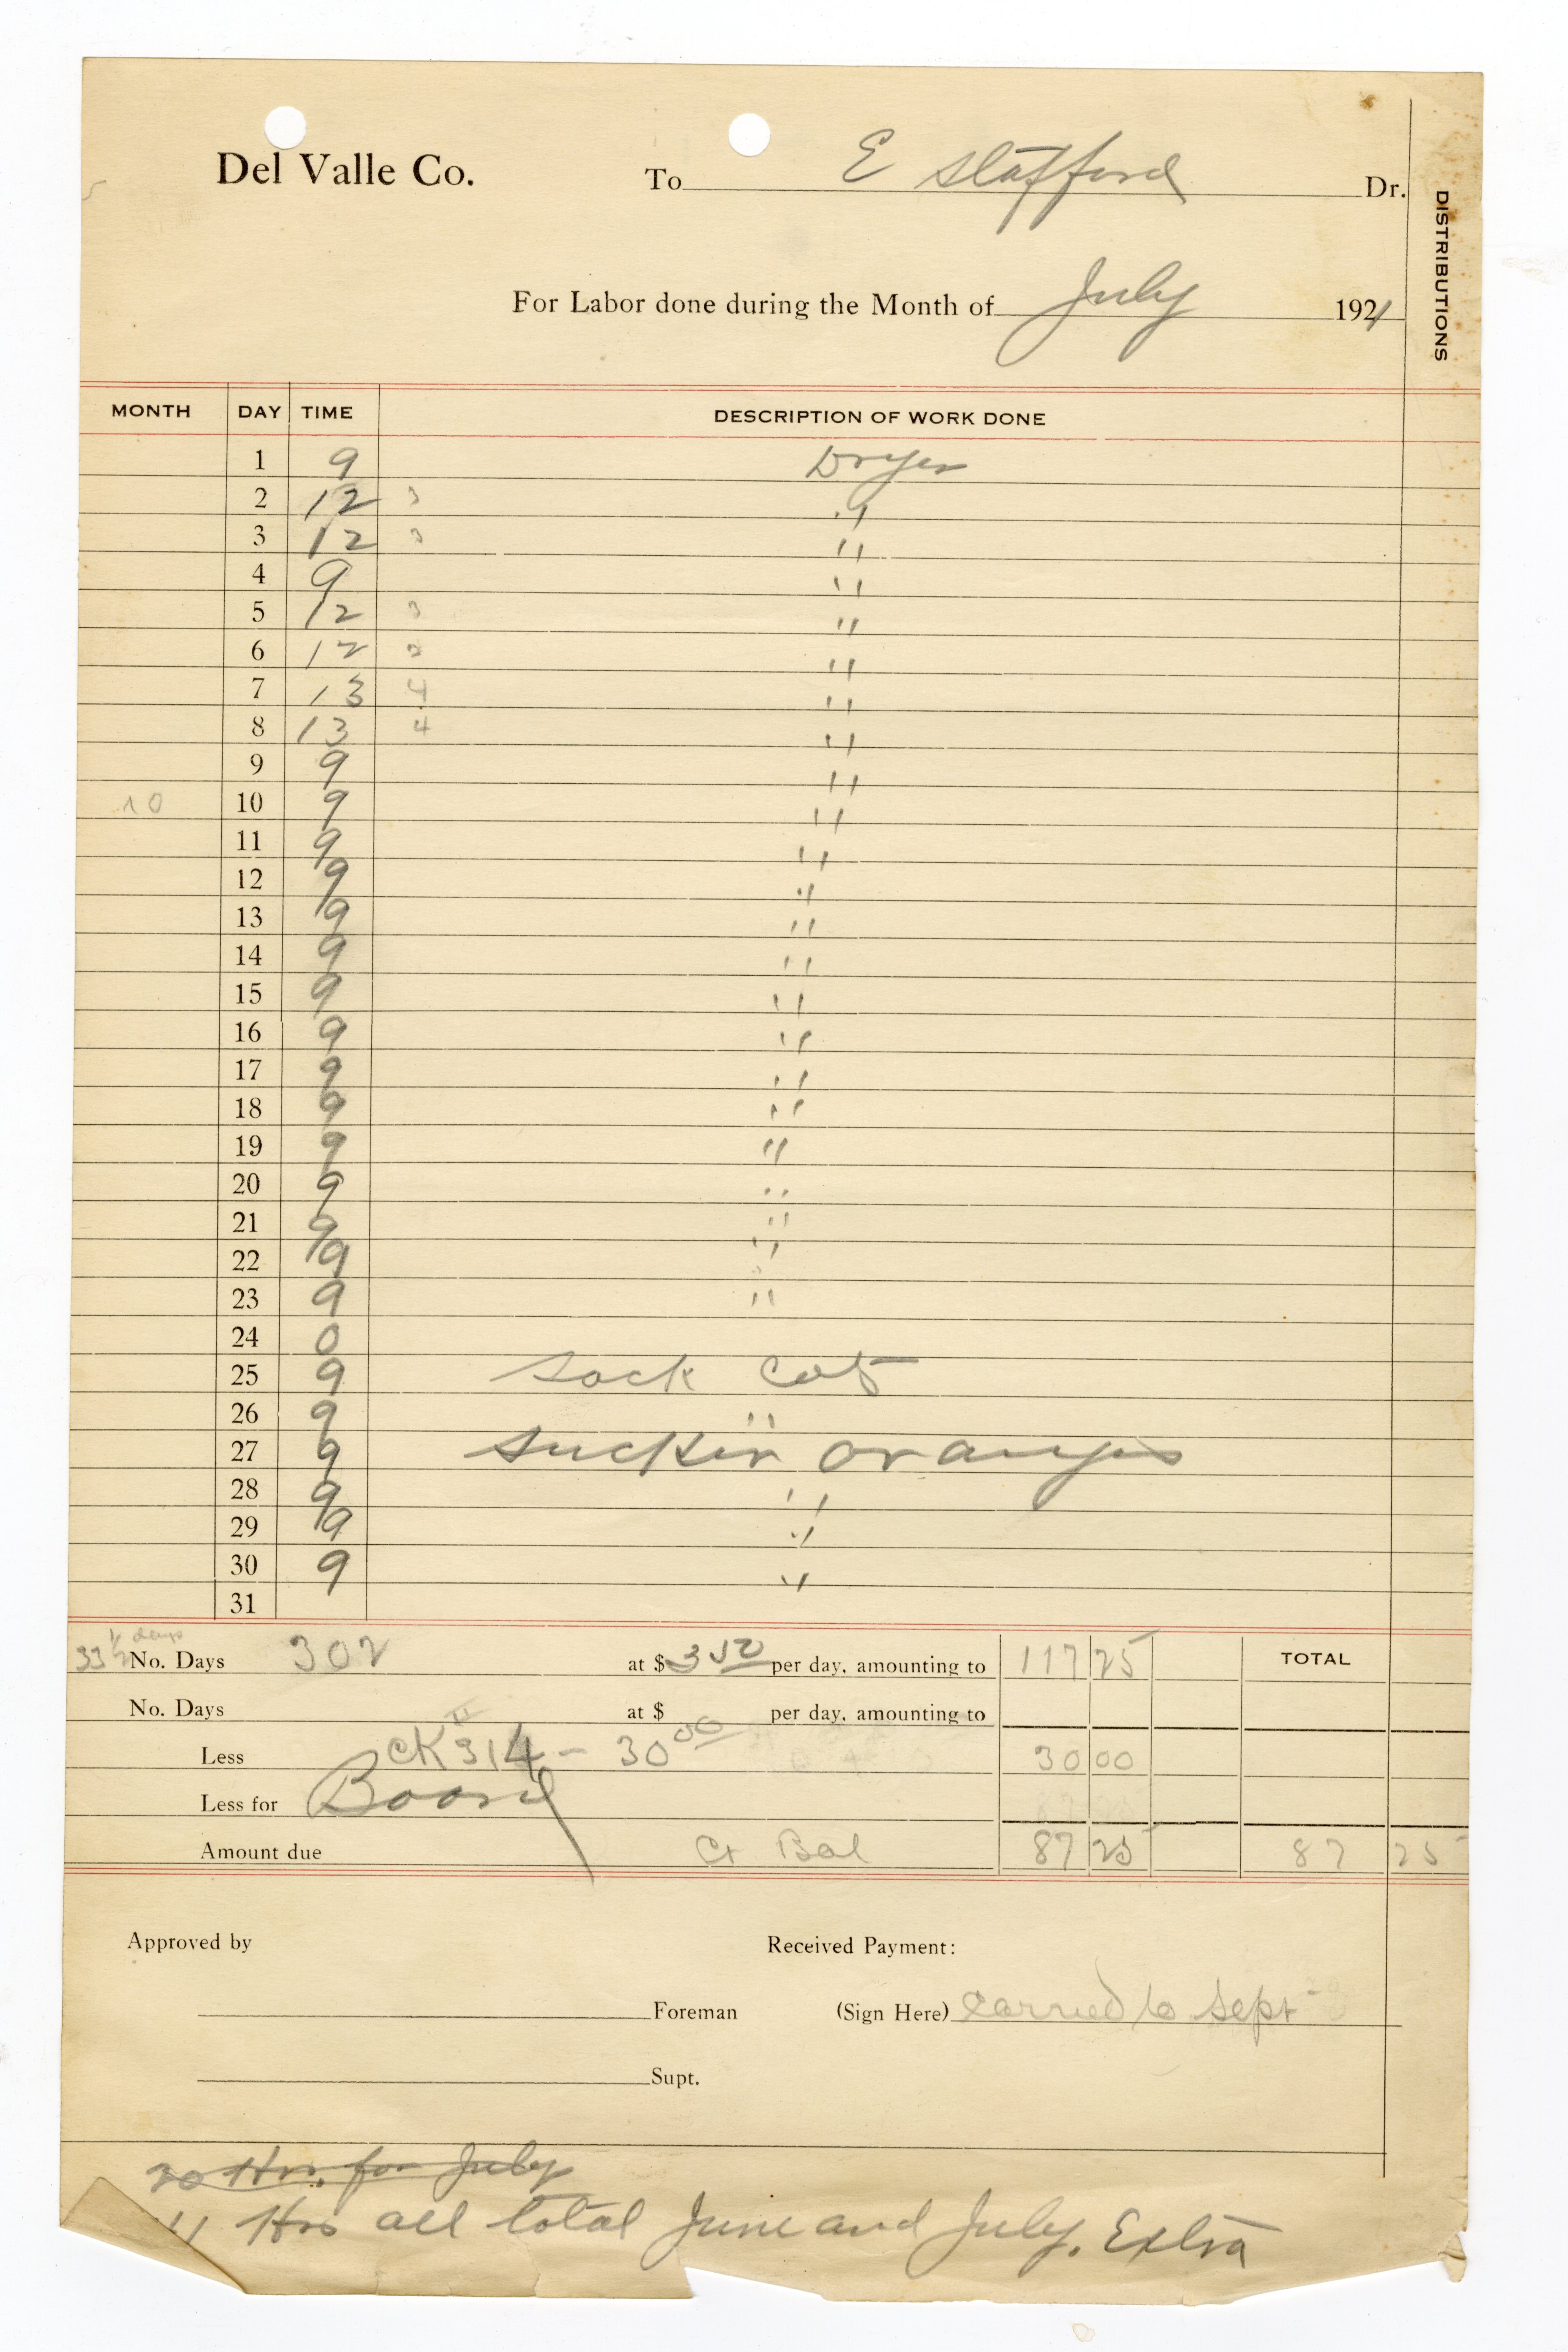 Del Valle Co. To E Stafford Dr.
DISTRIBUTIONS
For Labor done during the Month of July 1921
MONTH DAY TIME DESCRIPTION OF WORK DONE
1 9 Dryer
2 12 3 "
3 12 3 "
4 9 "
5 12 3 "
6 12 3 "
7 13 4 "
8 13 4 "
9 9 "
10 10 9 "
11 9 "
12 9 "
13 9 "
14 9 "
15 9 "
16 9 "
17 9 "
18 9 "
19 9 "
20 9 "
21 9 "
22 9 "
23 9 "
24 0
25 9 sack cots
26 9 "
27 9 sucker oranges
28 9 "
29 9 "
30 9 "
31
33 1/2 days
No. Days 302 at $ 3 50 per day, amounting to 117 25 TOTAL
No. Days at $ per day, amounting to
Less CK 314 - 30 00 30 00
Less for Board
Amount due Cr Bal 87 25 87 25
Approved by Received Payment:
Foreman (Sign Here) carried to Sept
Supt.
20 Hrs. for July
Hrs all total June and July. Extra